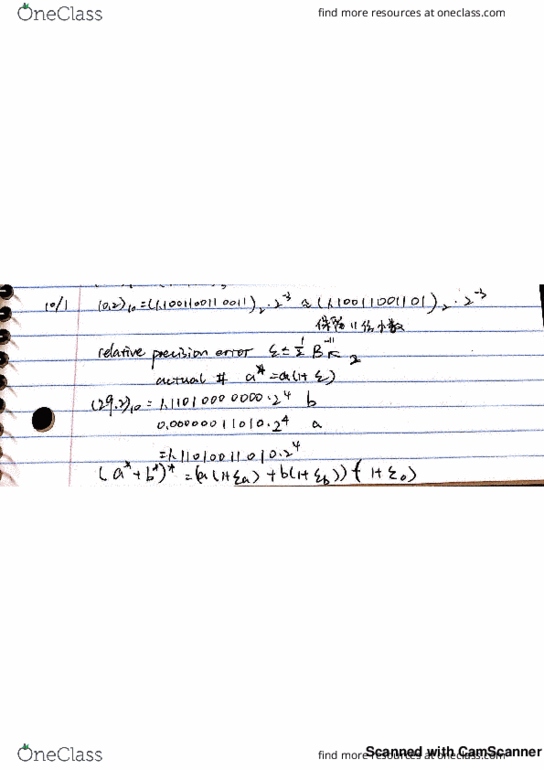 OneClass
find more resources at oneclass.com
10/1 (0.2)₁₀ = (1.100110011 0011)₂ · 2⁻³ ≈ (1.10011001101)₂ · 2⁻³
保留11位小数
relative precision error ε ≤ ½ B⁻¹¹
actual # a* = a(1+ε)
(29.2)₁₀ = 1.1101 000 0000 · 2⁴ b
0.00000011010 · 2⁴ a
= 1.11010011010 · 2⁴
(a* + b*)* = (a(1+εa) + b(1+εb))(1+ε₀)
Scanned with CamScanner
OneClass
find more resources at oneclass.com